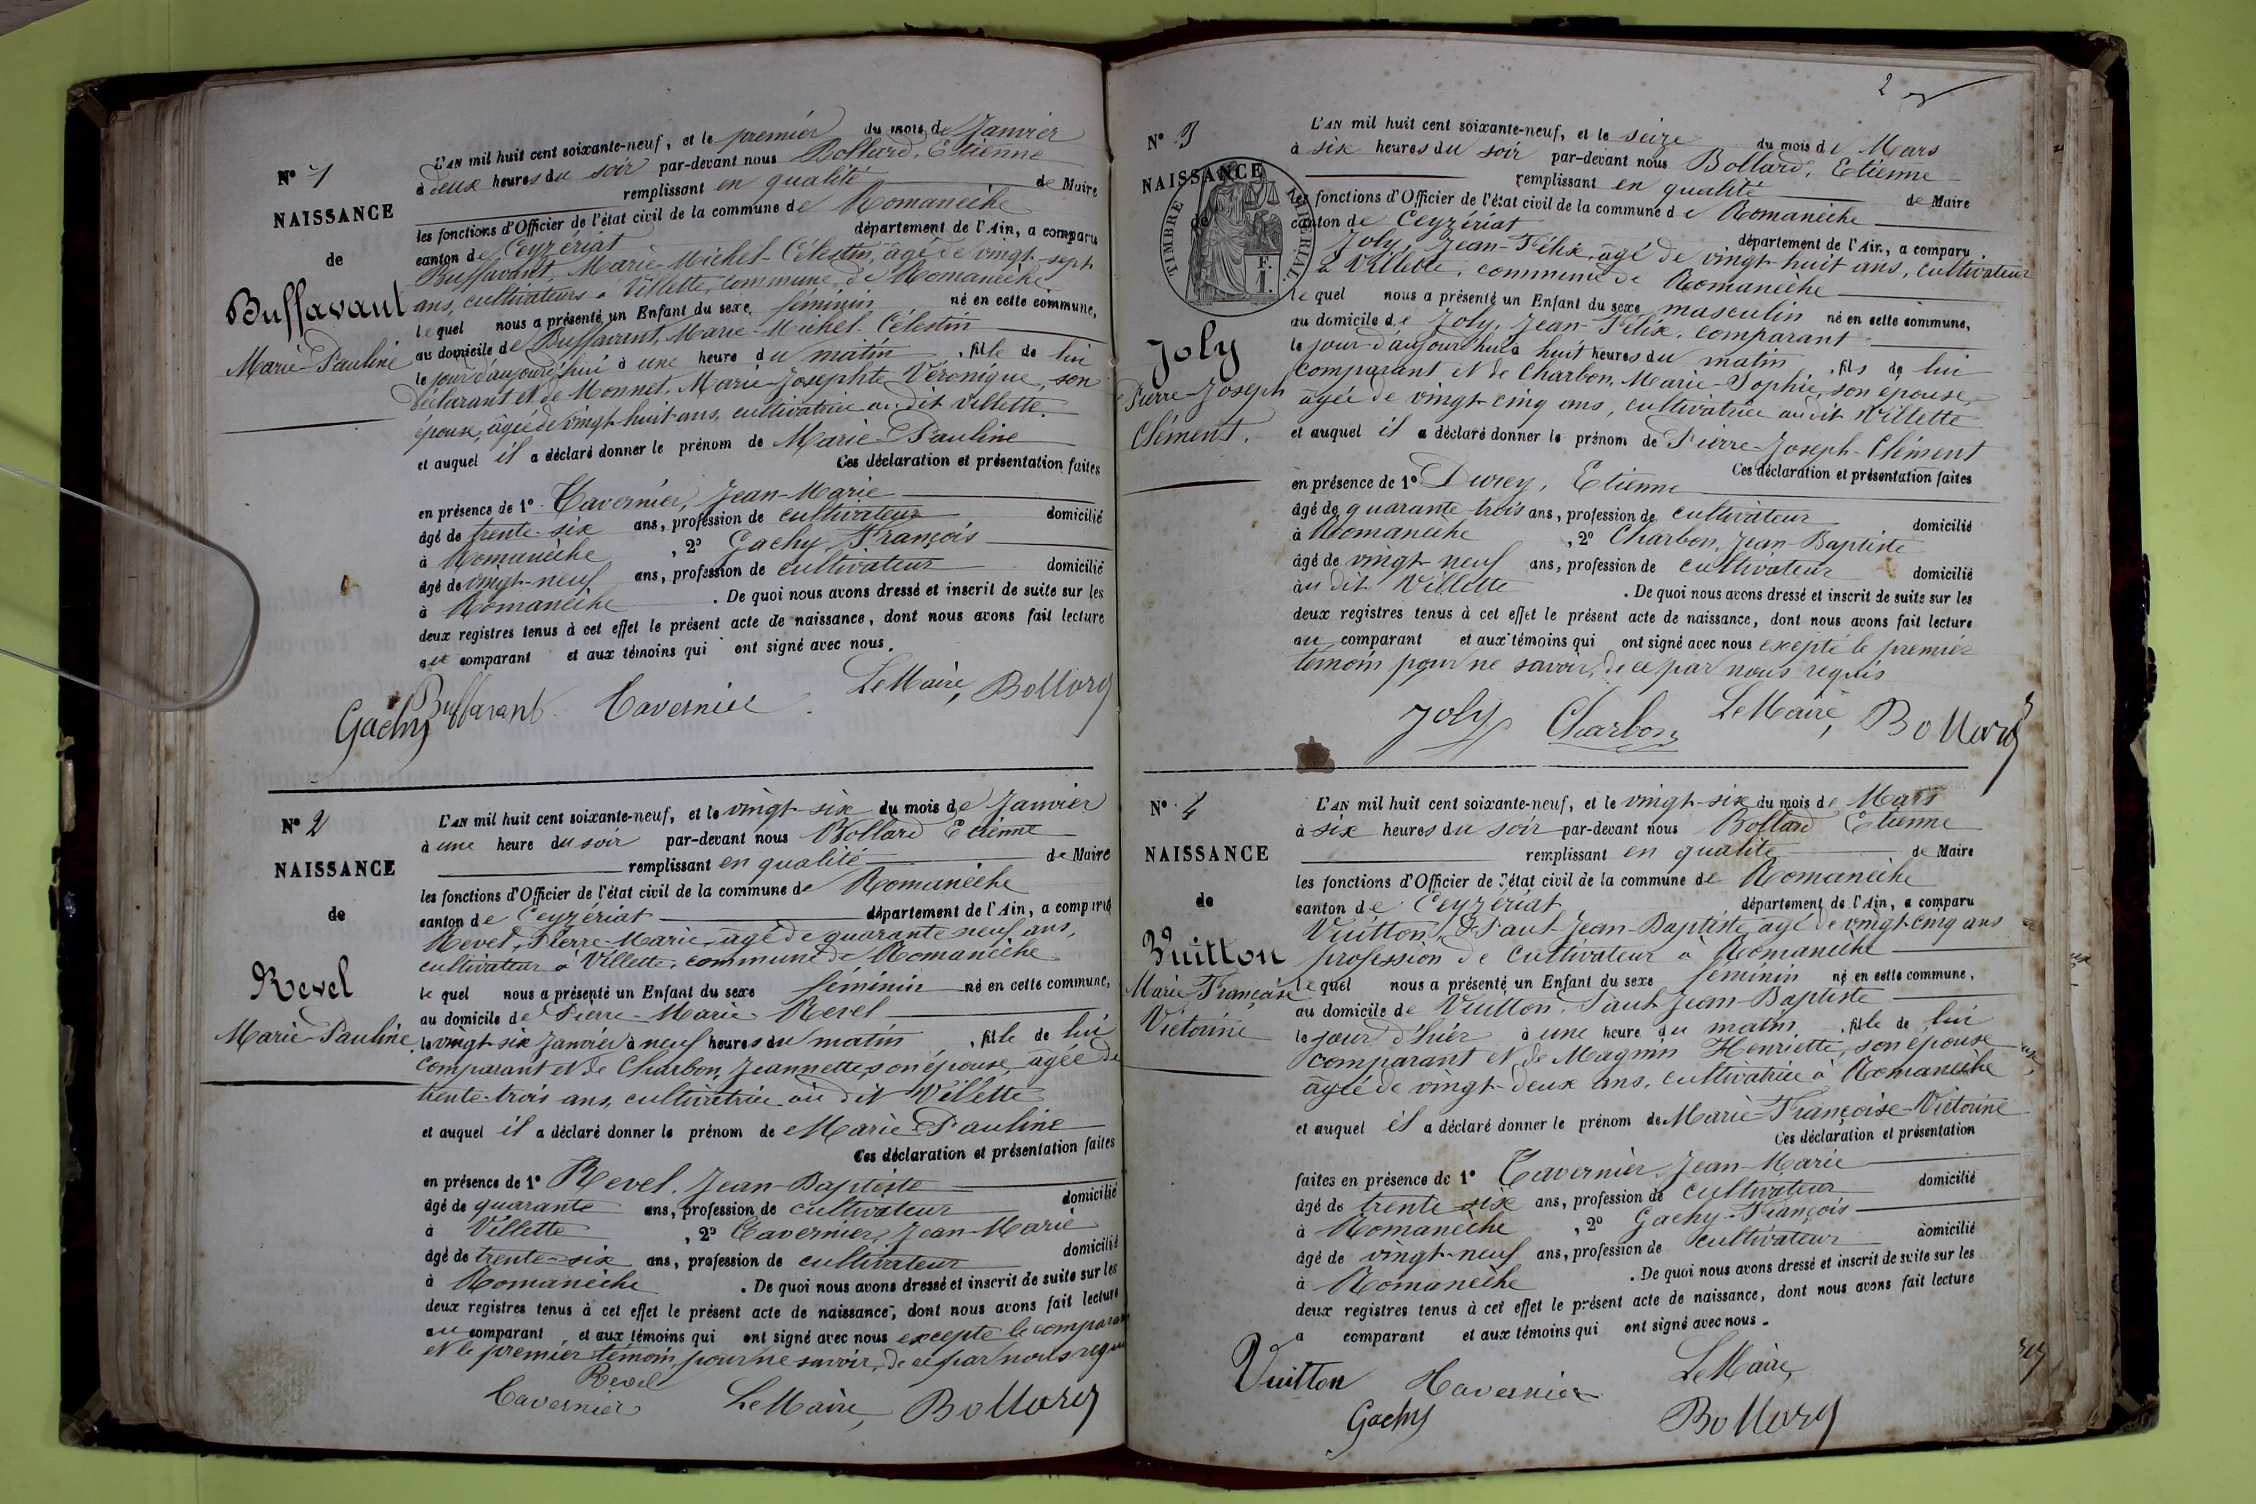 N° 1
NAISSANCE
de
Buffavant
Marie-Pauline
L'AN mil huit cent soixante-neuf, et le premier du mois de Janvier
à deux heures du soir par-devant nous Bollard, Etienne
remplissant en qualité de Maire
les fonctions d'Officier de l'état civil de la commune de Romanèche
canton de Ceyzériat département de l'Ain, a comparu
Buffavant Marie-Michel-Célestin, âgé de vingt-sept
ans, cultivateurs à Villette, commune de Romanèche
lequel nous a présenté un Enfant du sexe féminin né en cette commune,
au domicile de Buffavant, Marie-Michel-Célestin
le jour d'aujourd'hui à une heure du matin, fille de lui
déclarant et de Monnet, Marie-Josephte Véronique, son
épouse, âgée de vingt-huit ans, cultivatrice au dit Villette.
et auquel il a déclaré donner le prénom de Marie-Pauline
Ces déclaration et présentation faites
en présence de 1° Tavernier, Jean-Marie
âgé de trente-six ans, profession de cultivateur domicilié
à Romanèche, 2° Gachy, François
âgé de vingt-neuf ans, profession de cultivateur domicilié
à Romanèche. De quoi nous avons dressé et inscrit de suite sur les
deux registres tenus à cet effet le présent acte de naissance, dont nous avons fait lecture
au comparant et aux témoins qui ont signé avec nous.
Gachy Buffavant Tavernier Le Maire, Bollard
N° 2
NAISSANCE
de
Revel
Marie-Pauline
L'AN mil huit cent soixante-neuf, et le vingt-six du mois de Janvier
à une heure du soir par-devant nous Bollard Etienne
remplissant en qualité de Maire
les fonctions d'Officier de l'état civil de la commune de Romanèche
canton de Ceyzériat département de l'Ain, a comparu
Revel, Pierre-Marie, âgé de quarante neuf ans,
cultivateur à Villette, commune de Romanèche
lequel nous a présenté un Enfant du sexe féminin né en cette commune,
au domicile de Pierre-Marie Revel
le vingt-six Janvier à neuf heures du matin, fille de lui
comparant et de Charbon, Jeannette, son épouse, âgée de
trente-trois ans, cultivatrice au dit Villette
et auquel il a déclaré donner le prénom de Marie-Pauline
Ces déclaration et présentation faites
en présence de 1° Revel, Jean-Baptiste
âgé de quarante ans, profession de cultivateur domicilié
à Villette, 2° Tavernier, Jean-Marie
âgé de trente-six ans, profession de cultivateur domicilié
à Romanèche. De quoi nous avons dressé et inscrit de suite sur les
deux registres tenus à cet effet le présent acte de naissance, dont nous avons fait lecture
au comparant, et aux témoins qui ont signé avec nous excepté le comparant
et le premier témoin, pour ne savoir, de ce par nous requis
Revel
Tavernier Le Maire, Bollard
2
N° 3
NAISSANCE
de
TIMBRE IMPÉRIAL
1 F.
Joly
Pierre-Joseph
Clément.
L'AN mil huit cent soixante-neuf, et le seize du mois de Mars
à six heures du soir par-devant nous Bollard, Etienne
remplissant en qualité de Maire
les fonctions d'Officier de l'état civil de la commune de Romanèche
canton de Ceyzériat département de l'Ain, a comparu
Joly, Jean-Félix, âgé de vingt-huit ans, cultivateur
à Villette, commune de Romanèche
lequel nous a présenté un Enfant du sexe masculin né en cette commune,
au domicile de Joly, Jean-Félix, comparant
le jour d'aujourd'hui à huit heures du matin, fils de lui
comparant et de Charbon, Marie-Sophie, son épouse,
âgée de vingt-cinq ans, cultivatrice au dit Villette
et auquel il a déclaré donner le prénom de Pierre-Joseph-Clément
Ces déclaration et présentation faites
en présence de 1° Durey, Etienne
âgé de quarante-trois ans, profession de cultivateur domicilié
à Romanèche, 2° Charbon, Jean-Baptiste
âgé de vingt-neuf ans, profession de cultivateur domicilié
au dit Villette. De quoi nous avons dressé et inscrit de suite sur les
deux registres tenus à cet effet le présent acte de naissance, dont nous avons fait lecture
au comparant et aux témoins qui ont signé avec nous excepté le premier
témoin pour ne savoir, de ce par nous requis
Joly Charbon Le Maire, Bollard
N° 4
NAISSANCE
de
Vuitton
Marie-Françoise
Victorine
L'AN mil huit cent soixante-neuf, et le vingt-six du mois de Mars
à six heures du soir par-devant nous Bollard Etienne
remplissant en qualité de Maire
les fonctions d'Officier de l'état civil de la commune de Romanèche
canton de Ceyzériat département de l'Ain, a comparu
Vuitton, Paul Jean-Baptiste âgé de vingt-cinq ans
profession de cultivateur à Romanèche
lequel nous a présenté un Enfant du sexe féminin né en cette commune,
au domicile de Vuitton, Paul Jean-Baptiste
le jour d'hier à une heure du matin, fille de lui
comparant et de Magnin Henriette, son épouse
âgée de vingt-deux ans, cultivatrice à Romanèche
et auquel il a déclaré donner le prénom de Marie-Françoise-Victorine
Ces déclaration et présentation
faites en présence de 1° Tavernier, Jean-Marie
âgé de trente six ans, profession de cultivateur domicilié
à Romanèche, 2° Gachy-François
âgé de vingt-neuf ans, profession de cultivateur domicilié
à Romanèche. De quoi nous avons dressé et inscrit de suite sur les
deux registres tenus à cet effet le présent acte de naissance, dont nous avons fait lecture
a comparant et aux témoins qui ont signé avec nous.
Vuitton Tavernier Le Maire,
Gachy Bollard